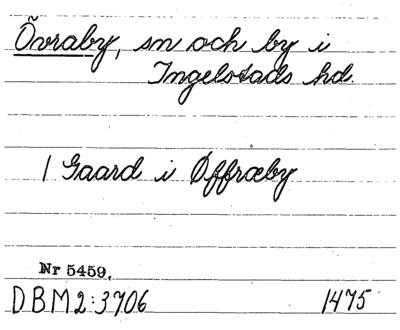 Övraby, sn och by i
Ingelstads hd.
1 Gaard i Øffræby
Nr 5459.
DBM2:3706 1475